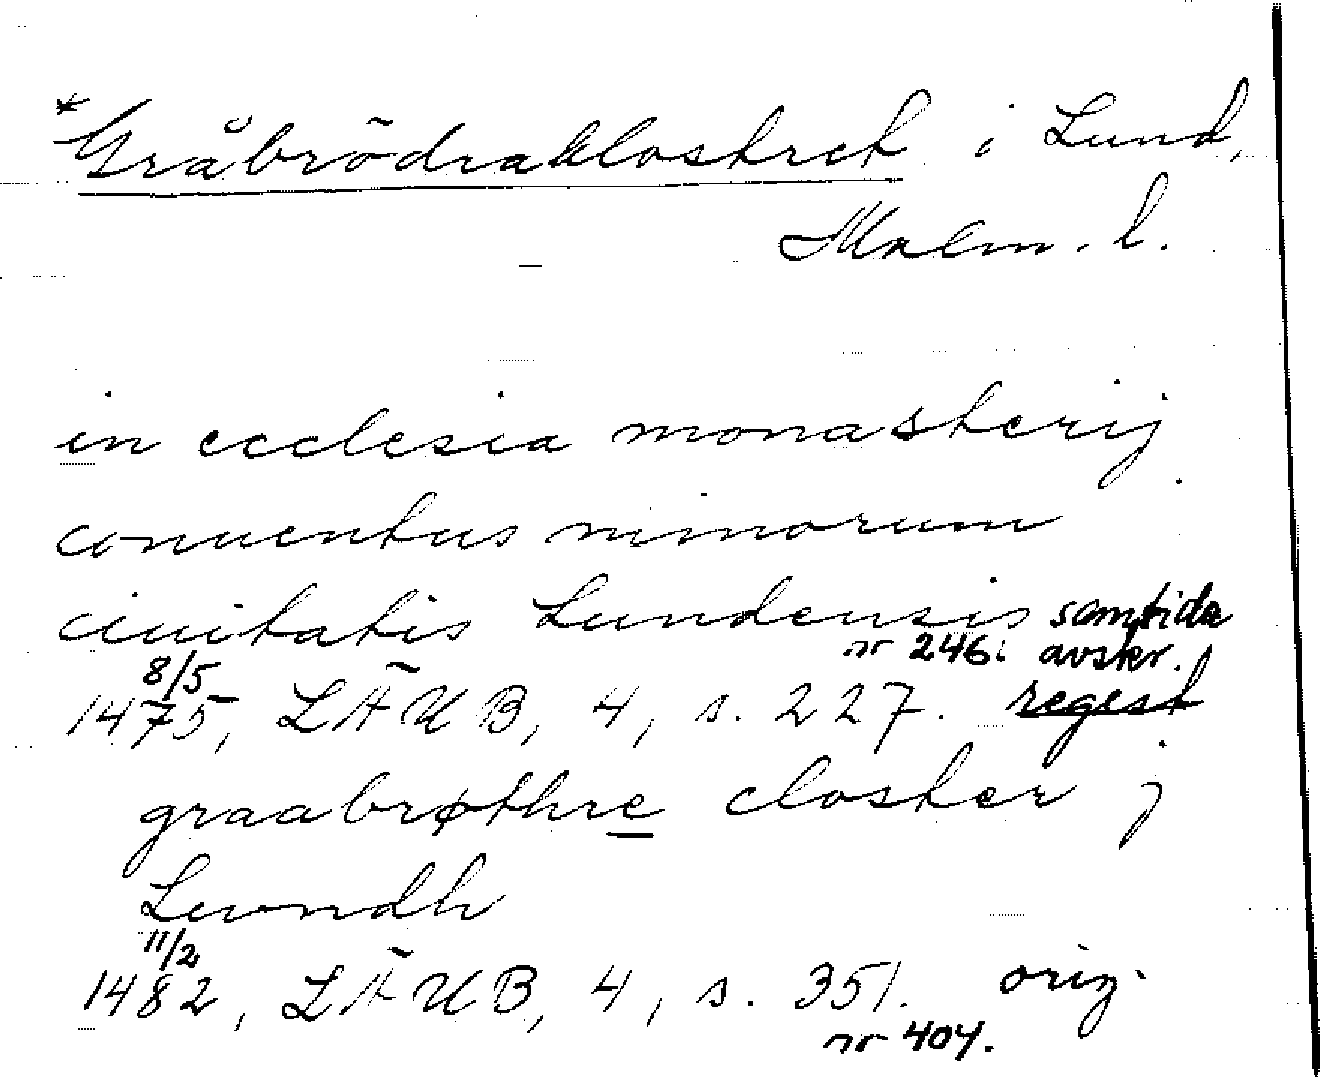 *Gråbrödraklostret i Lund,
Malm. l.
in ecclesia monasterij
conuentus minorum
ciuitatis Lundensis samtida
nr 246: avskr.
8/5
1475, LÄUB, 4, s. 227. regest
graabrøthre closter j
Lwndh
11/2
1482, LÄUB, 4, s. 351. orig.
nr 404.